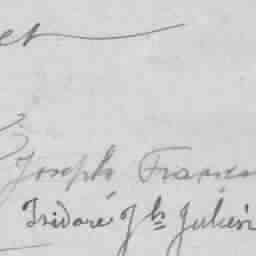 et
Joseph Franç
Isidore fils Julien